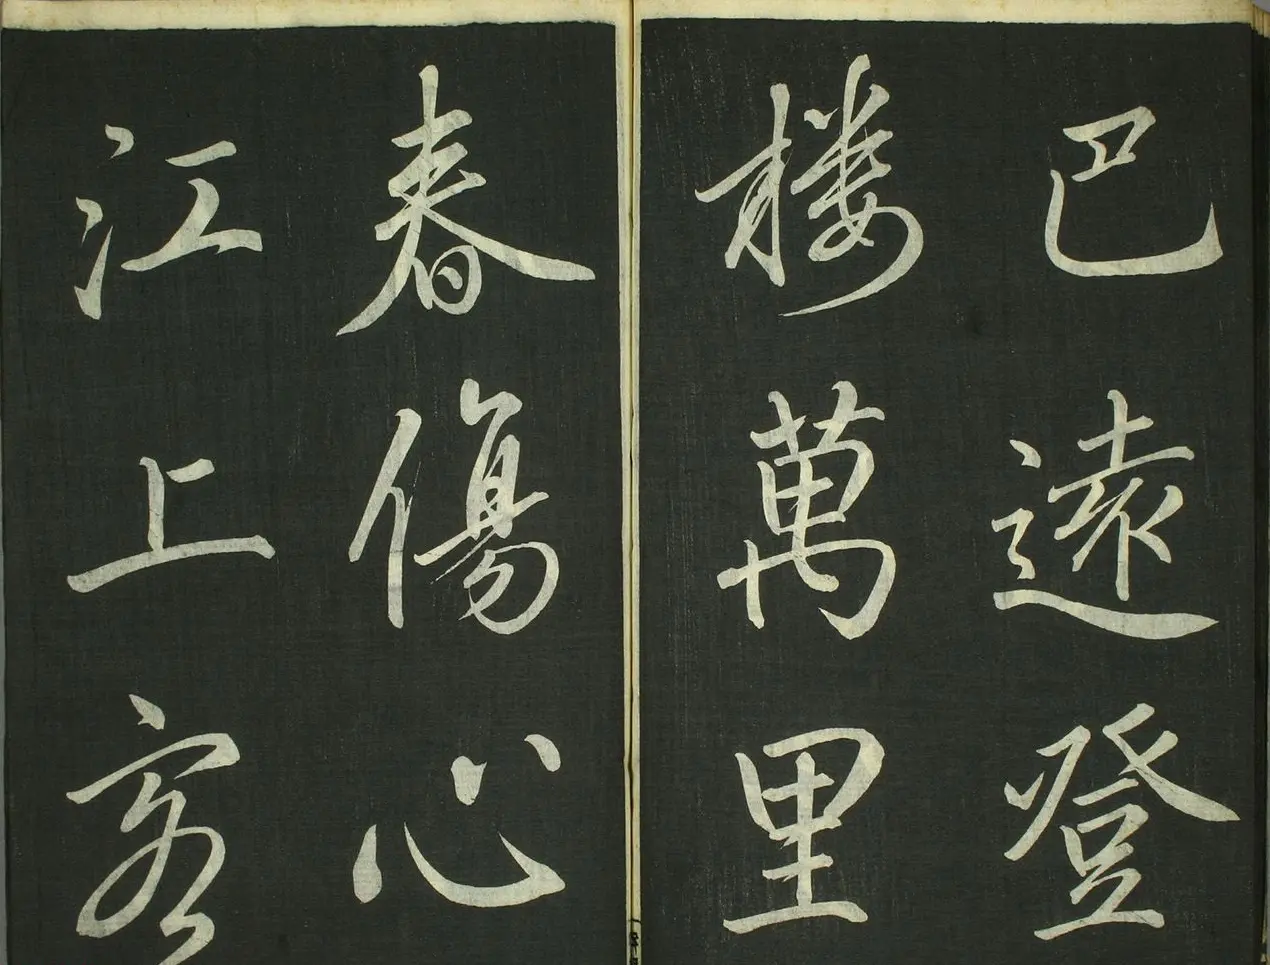 巴遠登
楼萬里
春傷心
江上客